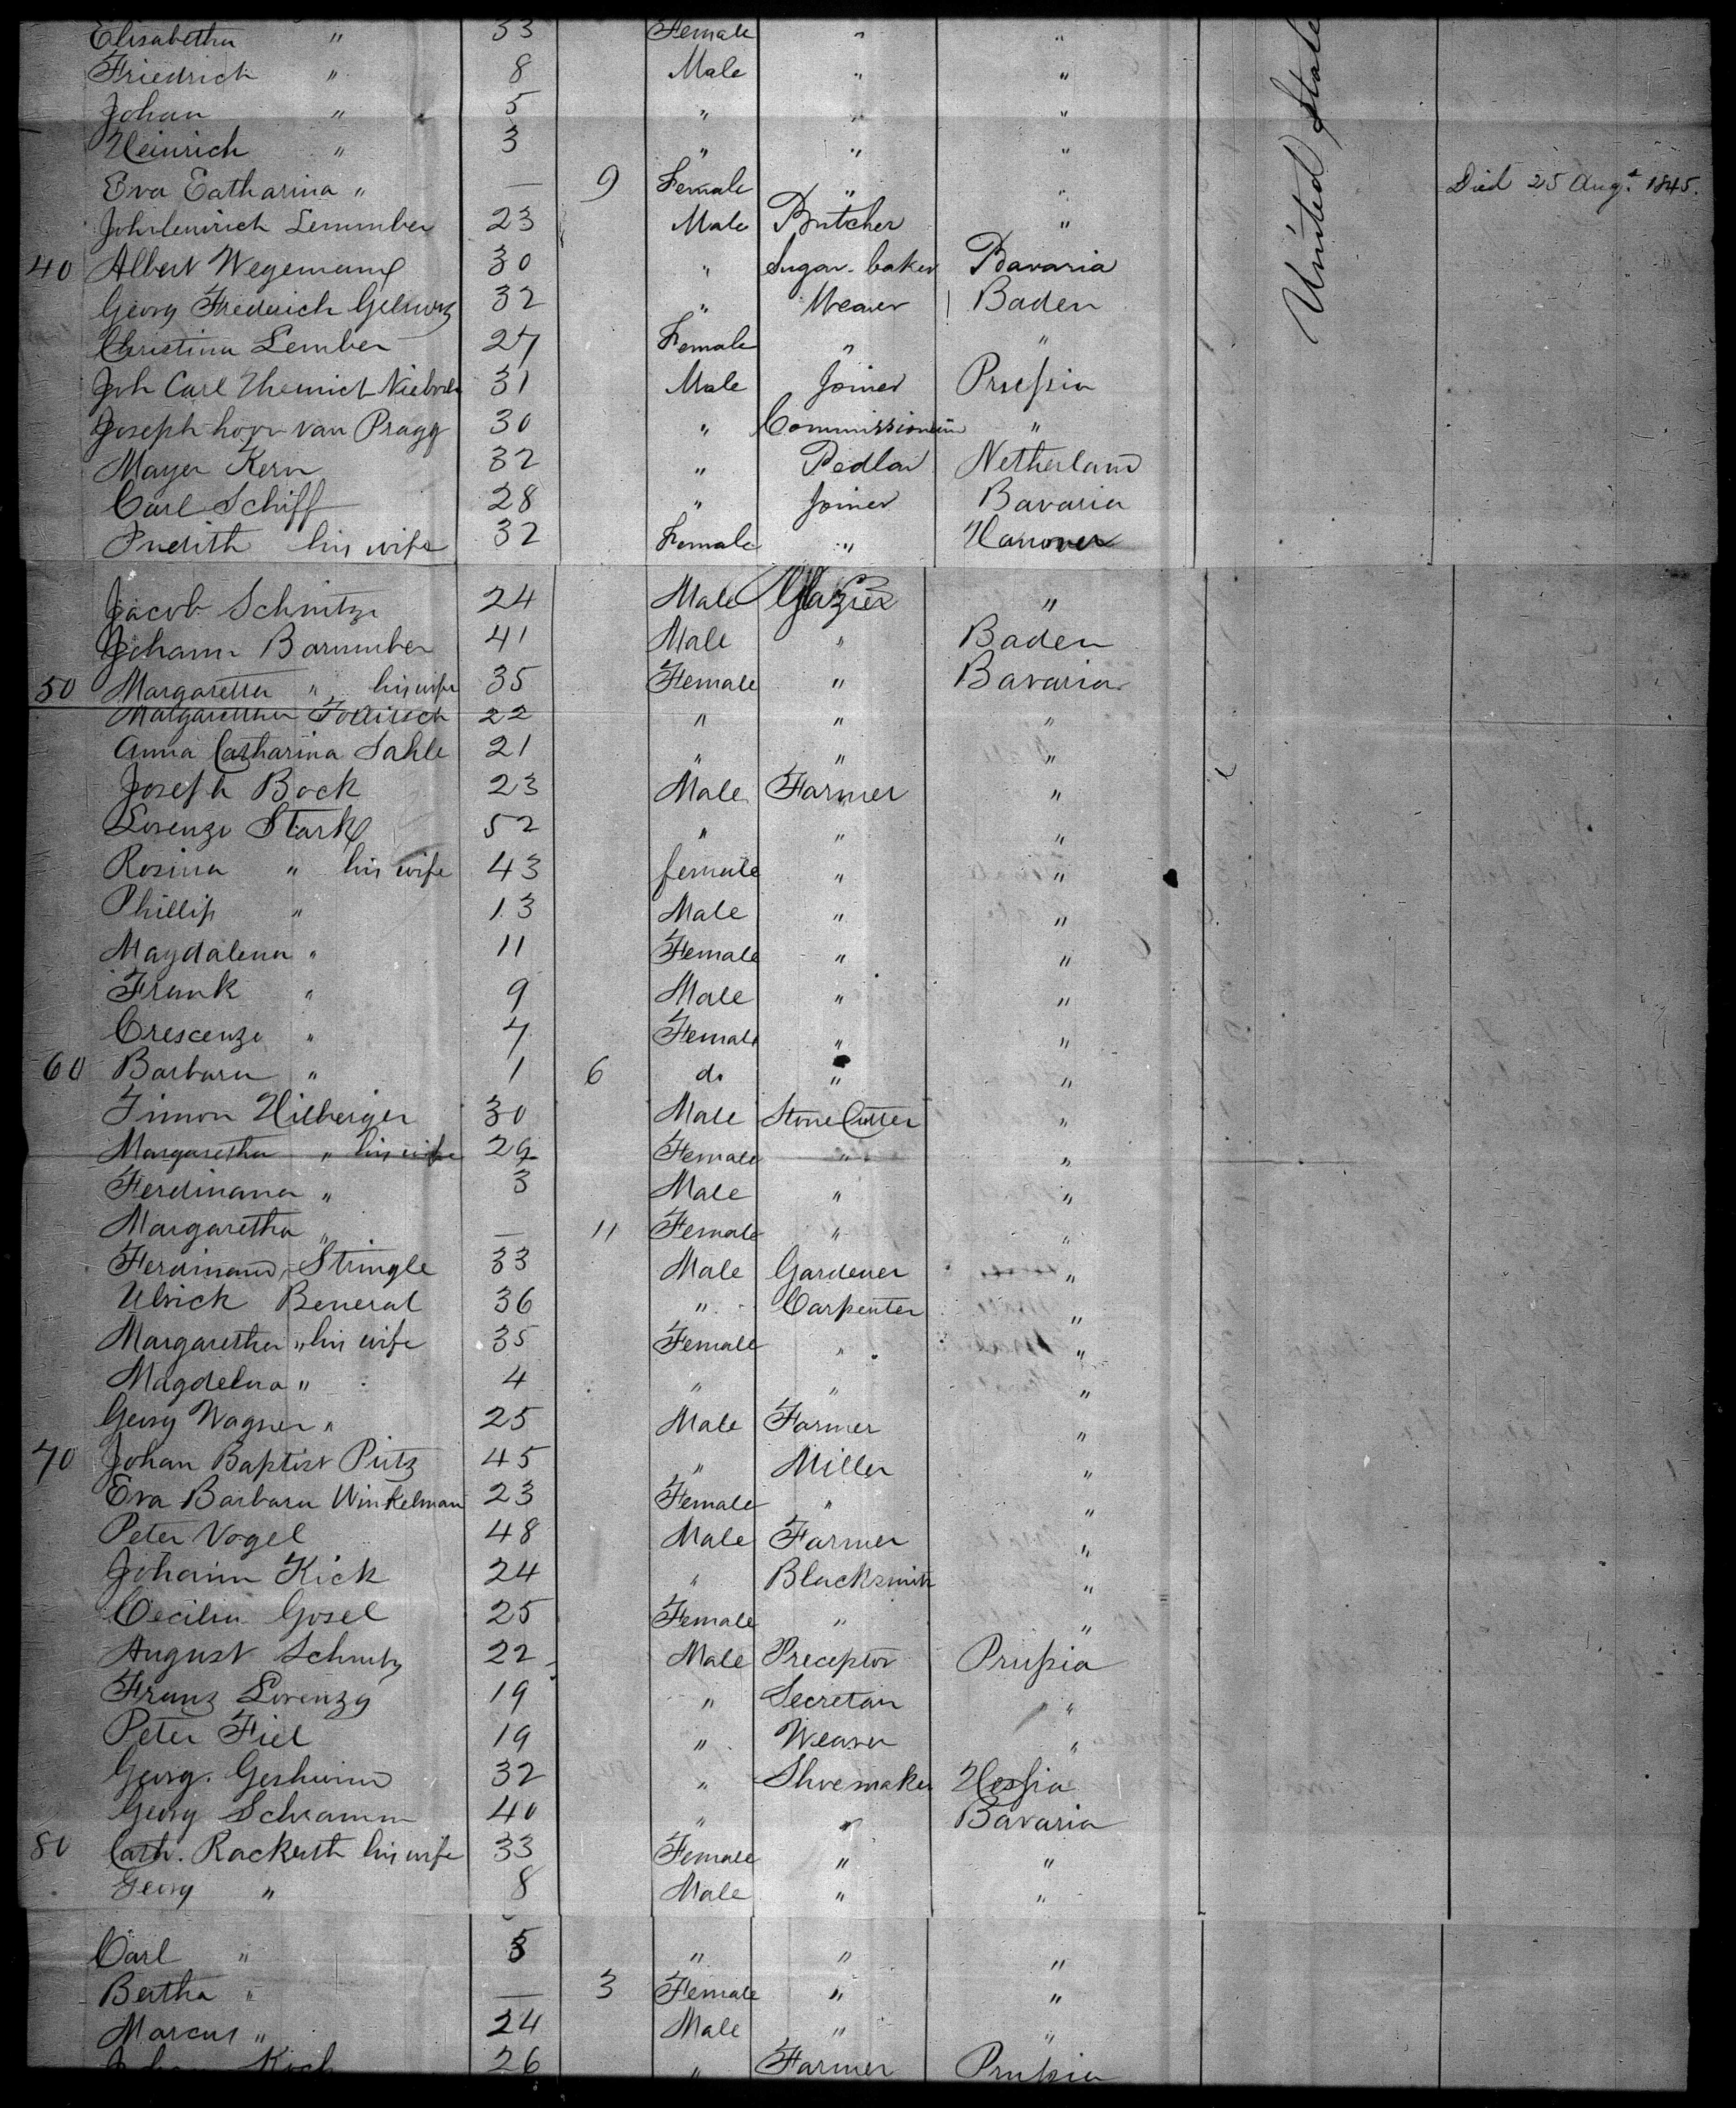 Elisabetha " 33 Female " "
Friedrich " 8 Male " "
Johan " 5 " " "
Heinrich " 3 " " "
Eva Catharina " — 9 Female " " Died 25 Augt. 1845.
Lemmber 23 Male Butcher "
40 Albert Wegemann 30 " Sugar-baker Bavaria
Georg Frederich 32 " Weaver Baden
Christina Lember 27 Female " "
Joh Carl 31 Male Joiner Prussia
Joseph van Pragg 30 " "
Mayer Kern 32 " Pedlar Netherland
Carl Schiff 28 " Joiner Bavaria
Judith his wife 32 Female " Hanover
United State
Jacob Schnitze 24 Male Glazier "
Johann Barumber 41 Male " Baden
50 Margaretta " his wife 35 Female " Bavaria
Margaretha 22 " " "
Anna Catharina Sahle 21 " " "
Joseph Bock 23 Male Farmer "
Lorenzo Stark 52 " " "
Rosina " his wife 43 female " "
Phillip " 13 Male " "
Magdalena " 11 Female " "
Frank " 9 Male " "
Crescenze " 7 Female " "
60 Barbara " 1 6 do " "
Simon Hilberger 30 Male Stone Cutter "
Margaretha " his wife 29 Female " "
Ferdinand " 3 Male " "
Margaretha " — 11 Female " "
Ferdinand Stringle 33 Male Gardener "
Ulrick Beneral 36 " Carpenter "
Margaretha " his wife 35 Female " "
Magdelna " 4 " " "
Georg Wagner " 25 Male Farmer "
70 Johan Baptist Putz 45 " Miller "
Eva Barbara Winkelman 23 Female " "
Peter Vogel 48 Male Farmer "
Johann Kick 24 " Blacksmith "
Cecilia Gosel 25 Female " "
August Schmitz 22 Male Preceptor Prussia
Franz Lorenzy 19 " Secretary "
Peter Fiel 19 " Weaver "
Georg. 32 " Shoemaker Hessia
Georg Schramm 40 " " Bavaria
80 Cath. Rackerth his wife 33 Female " "
Georg " 8 Male " "
Carl " 5 " " "
Bertha " — 3 Female " "
Marcus " 24 Male " "
Koch 26 " Farmer Prussia